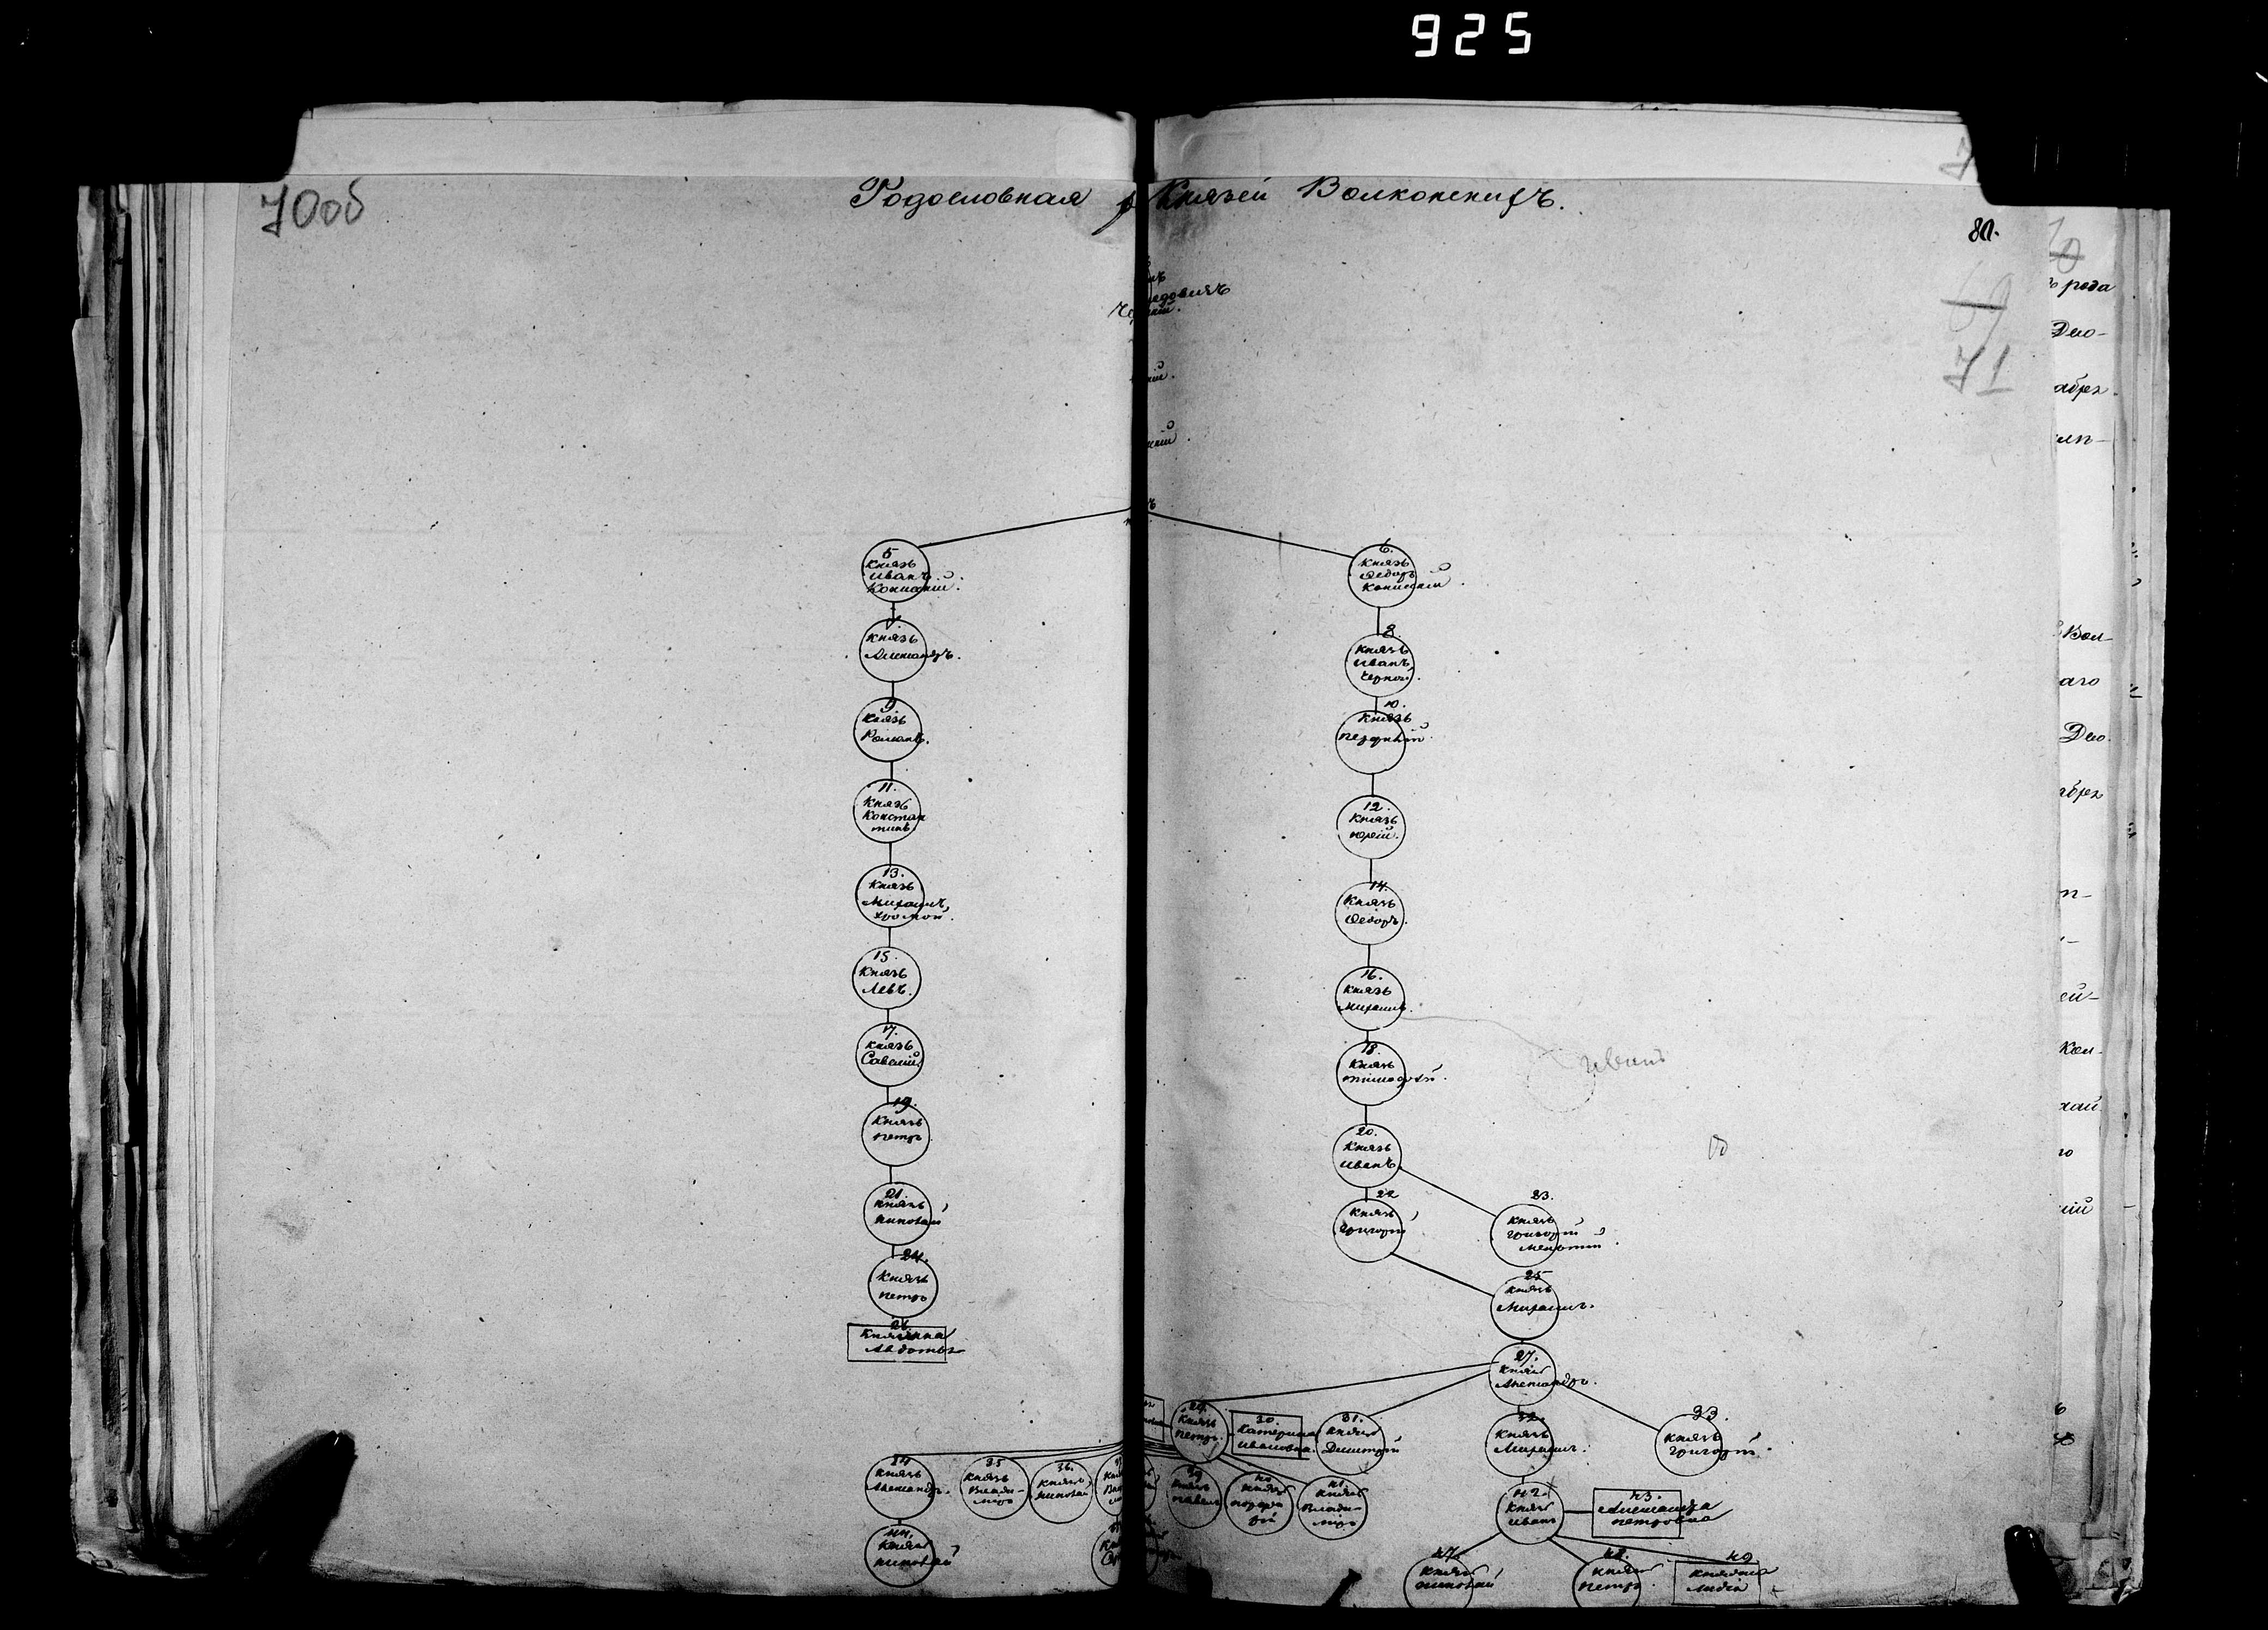 925
70об
Родословная Князей Волконскихъ.
80.
69
71
5
Князь
Иванъ
6.
Князь
Ѳедоръ
Князь
Александръ.
8.
Князь
Иванъ
Черной.
9.
Князь
Романъ.
10.
Князь
11.
Князь
Констан
тинъ
12.
Князь
Юрій.
13.
Князь
Михаилъ,
хромой.
14.
Князь
Ѳедоръ.
15.
Князь
Левъ.
16.
Князь
Михаилъ.
17.
Князь
Савелій.
18.
Князь
Тимофей.
Иванъ
19.
Князь
Петръ
20.
Князь
Иванъ.
21.
Князь
Николай
22
Князь
Григорій
23.
Князь
Григорій
Меньшій.
24.
Князь
Петръ
25
Князь
Михаилъ.
Княжна
Авдотья
27.
Князь
Александръ.
29.
Князь
Петръ.
30.
Катерина
Ивановна.
31.
Князь
Димитрій
32.
Князь
Михаилъ.
33.
Князь
Григорій.
34
Князь
Александръ.
35
Князь
Влади-
міръ
36.
Князь
Николай
39
Князь
Павелъ
40
Князь
41
Князь
Влади-
міръ
42.
Князь
Иванъ
43.
Александра
Петровна
44.
Князь
Николай
47.
Князь
Николай
48.
Князь
Петръ.
49
Княжна
Лидія